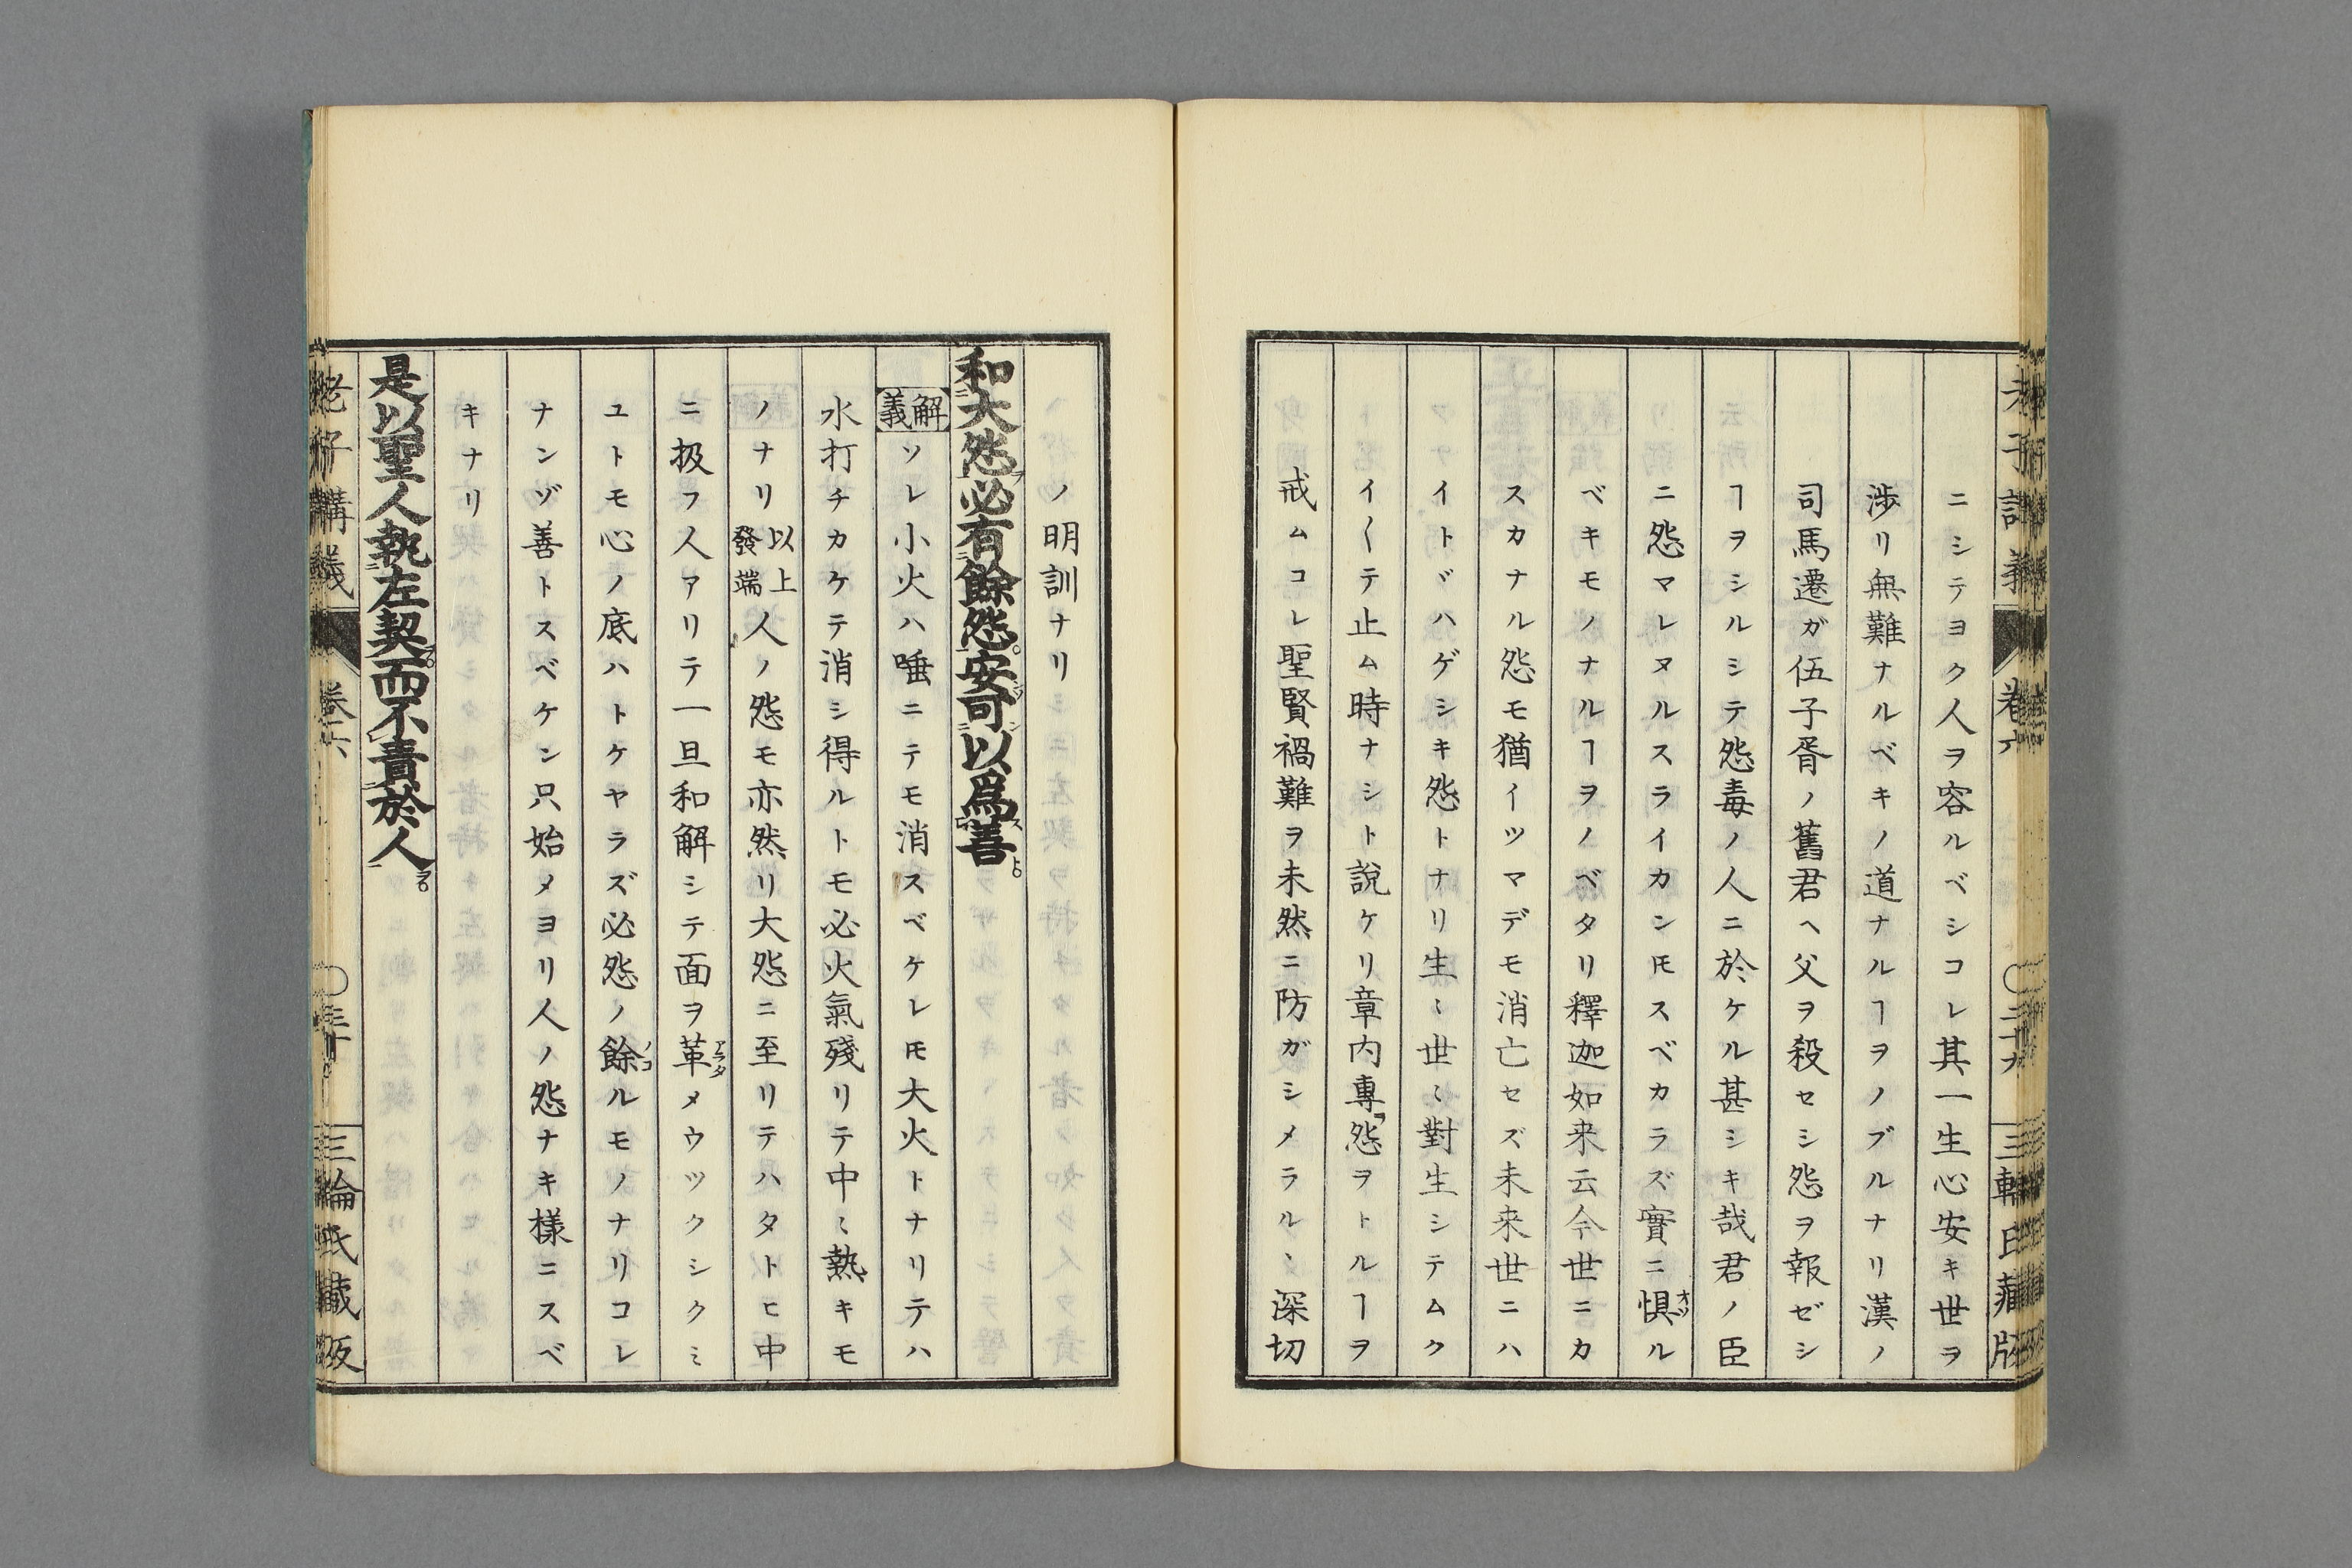 ニシテヨク人ヲ容ルベシコレ其一生心安キ世ヲ
渉リ無難ナルベキノ道ナルヿヲノブルナリ漢ノ
司馬遷ガ伍子胥ノ舊君ヘ父ヲ殺セシ怨ヲ報ゼシ
ヿヲシルシテ怨毒ノ人ニ於ケル甚シキ哉君ノ臣
ニ怨マレヌルスライカンモスベカラズ實ニ惧オソル
ベキモノナルヿヲノベタリ釋迦如来云今世ニカ
スカナル怨モ猶イツマデモ消亡セズ未来世ニハ
イトヾハゲシキ怨トナリ生〻世〻對生シテムク
イ〱テ止ム時ナシト說ケリ章內專ラ怨ヲトルヿヲ
戒ムコレ聖賢禍難ヲ未然ニ防ガシメラル〻深切
老子講義 卷六 〇三十九 三輪氏藏版
ノ明訓ナリ
和大怨必有餘怨安可以爲善
解義 ソレ小火ハ唾ニテモ消スベケレ𪜈大火トナリテハ
水打チカケテ消シ得ルトモ必火氣殘リテ中〻熱キモ
ノナリ以上發端人ノ怨モ亦然リ大怨ニ至リテハタトヒ中
ニ扱フ人アリテ一旦和解シテ面ヲ革アラタメウツクシクミ
ユトモ心ノ底ハトケヤラズ必怨ノ餘ノコルモノナリコレ
ナンゾ善トスベケン只始メヨリ人ノ怨ナキ樣ニスベ
キナリ
是以聖人執左契而不責於人
老子講義 卷六 三輪氏藏版